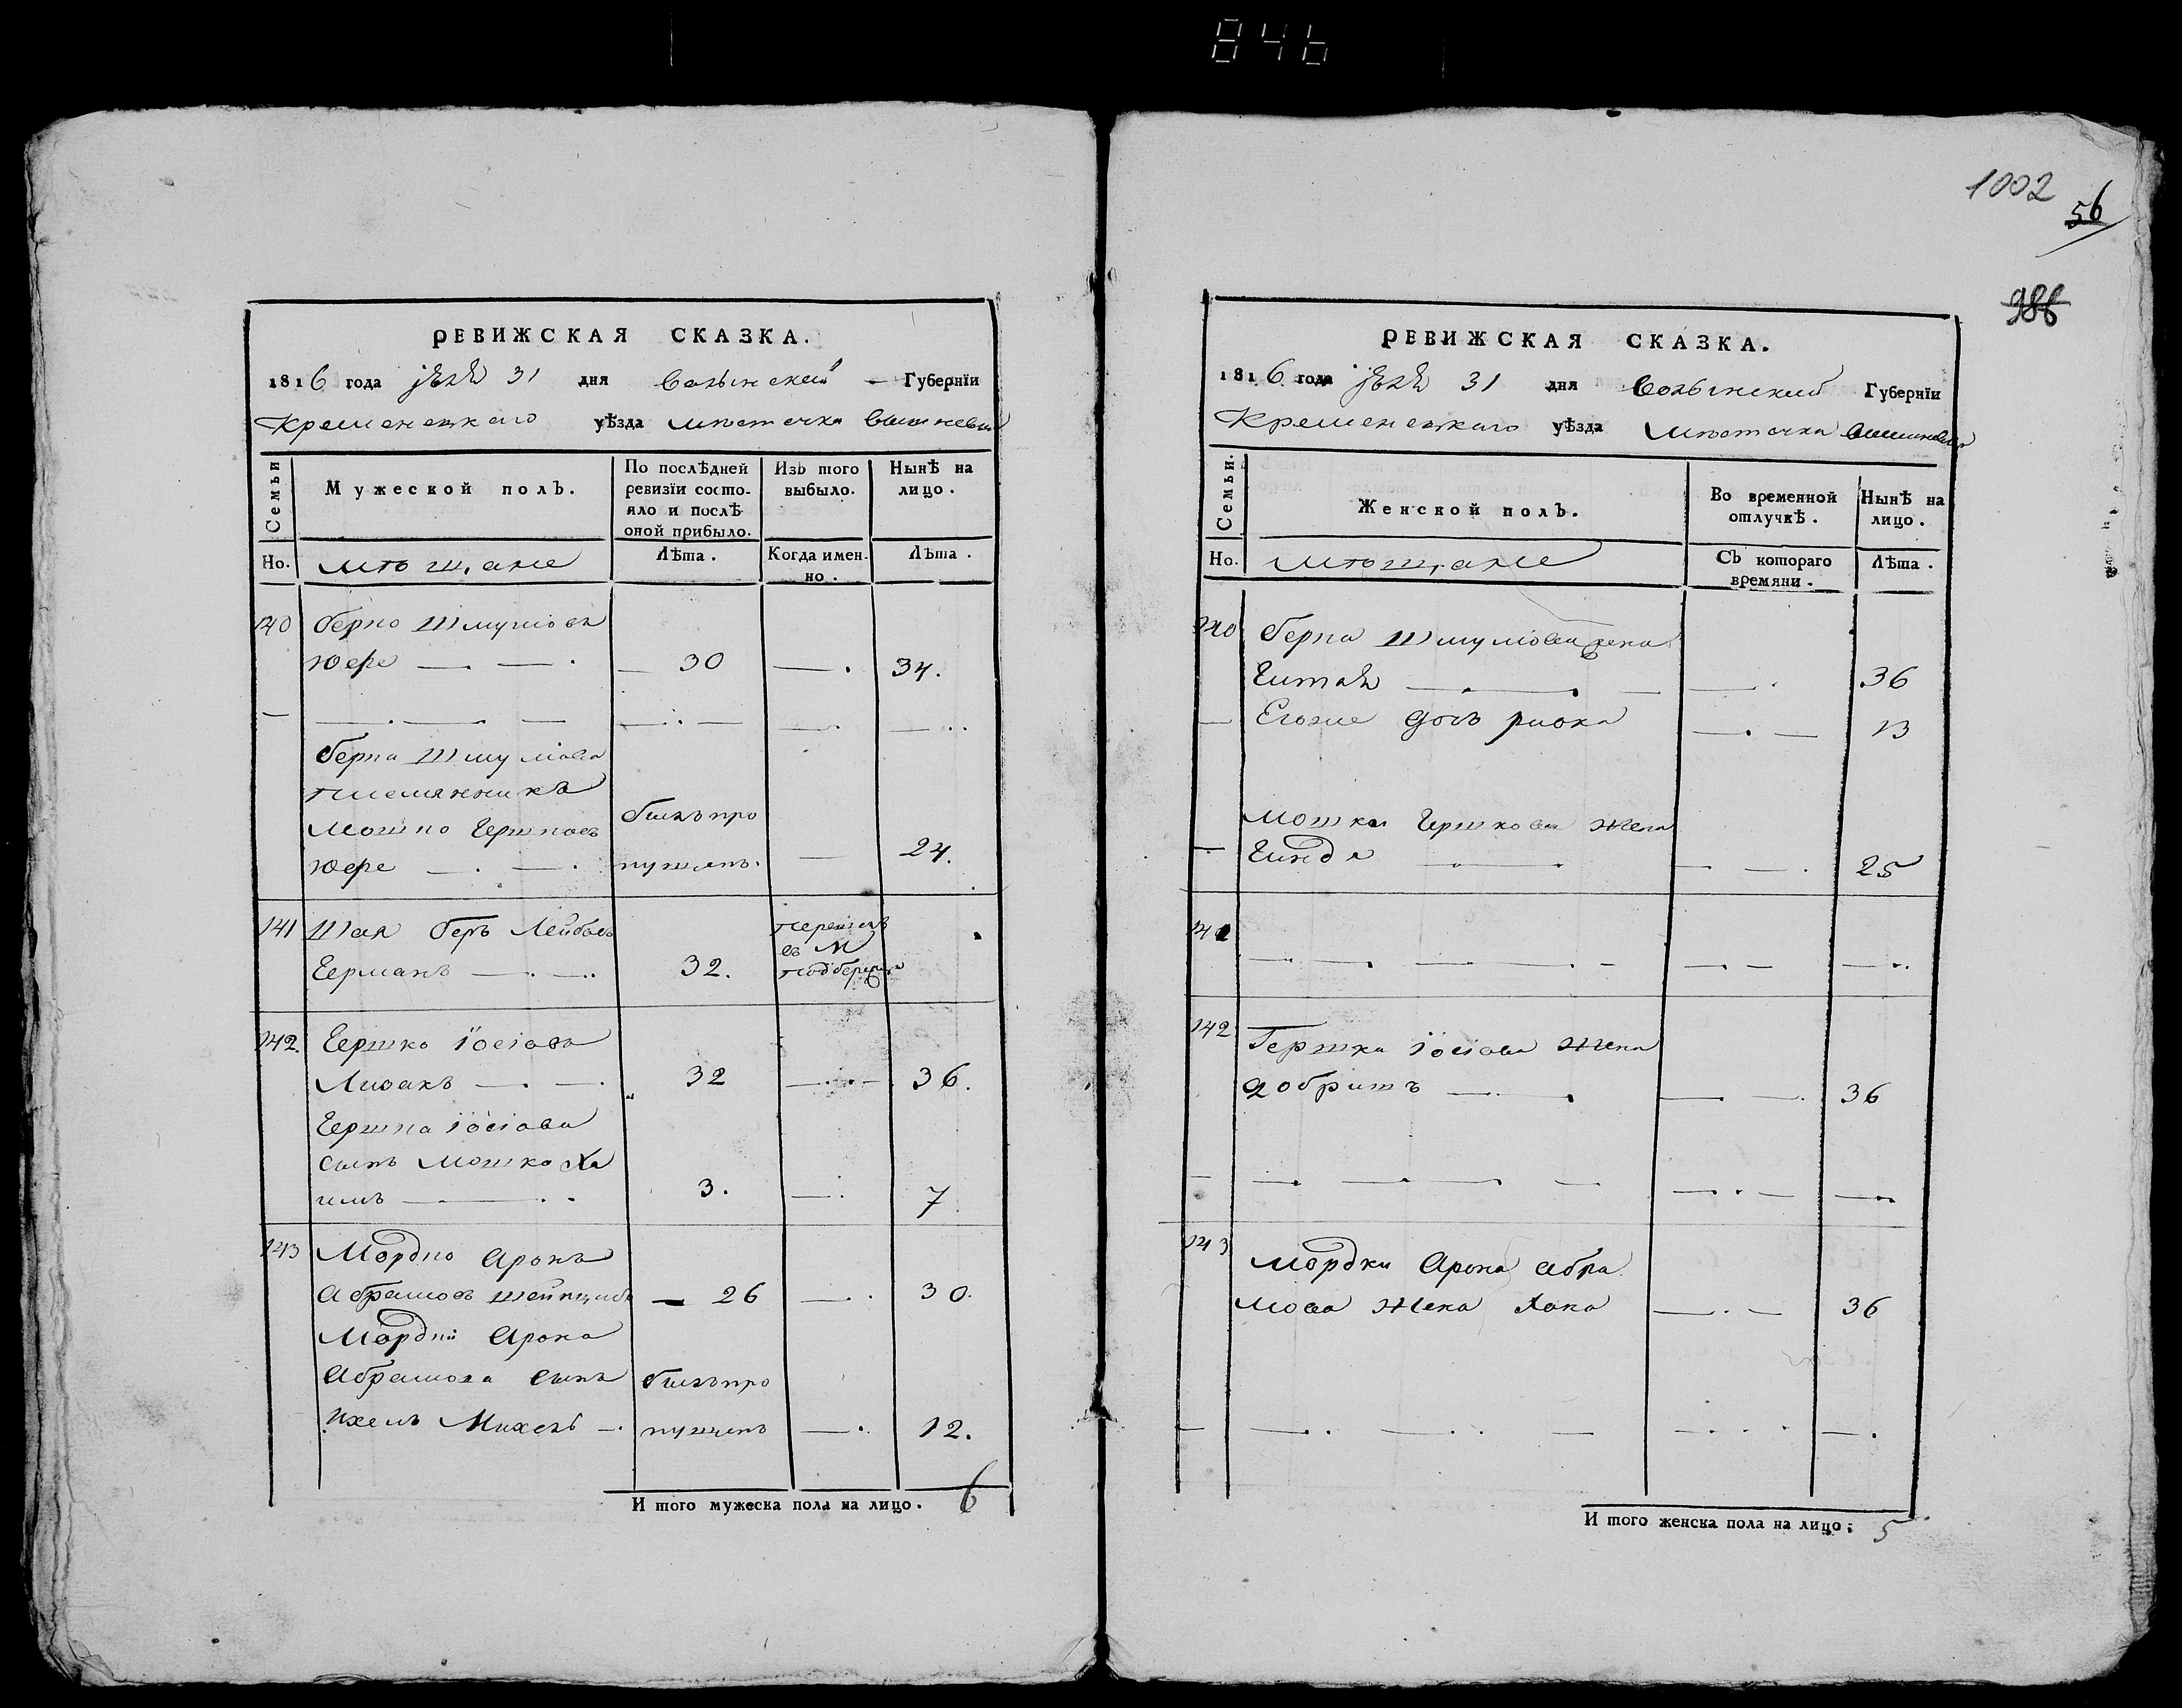 846
РЕВИЖСКАЯ СКАЗКА.
1816 года 31 дня Волынской Губернїи
Кременецкаго уѣзда мѣстечка Вишневца
Семьи
Мужеской полъ.
По послѣдней ревизїи состо-
яло и послѣ оной прибыло.
Изъ того выбыло.
Нынѣ на лицо.
Но.
мѣщане
Лѣта.
Когда имен-
но.
Лѣта.
140 Берко Шмулiовъ
Юфе — 30 — 34.
Берка Шмулiова
племянникъ
Мошко Гершковъ былъ про
Юфе — пущенъ. — 24.
141 Шая Беръ Лейбовъ
Германъ — 32.
перешелъ
въ М
142. Гершко Іосіовъ
Лисакъ — 32 — 36.
Гершка Іосіова
сынъ Мошко Ха
имъ — 3. — 7
143 Мордко Аронъ
Абрамовъ — 26 — 30.
Мордки Арона
Абрамова сынъ былъ про
Ихель Михель — пущенъ — 12.
И того мужеска пола на лицо. 6
1002
56
РЕВИЖСКАЯ СКАЗКА.
1816 года 31 дня Волынской Губернїи
Кременецкаго уѣзда мѣстечка Вишневца
Семьи.
Женской полъ.
Во временной отлучкѣ.
Нынѣ на лицо.
Но.
мѣщане
Съ котораго времяни.
Лѣта.
140 Берка Шмулiова жена
Гитля — 36
Егоже дочь — 13
Мошка Гершкова жена
Гинда — 25
141
142 Гершка Іосіова жена
Добришъ — 36
143 Мордки Арона Абра
мова жена Хана — 36
И того женска пола на лицо: 5